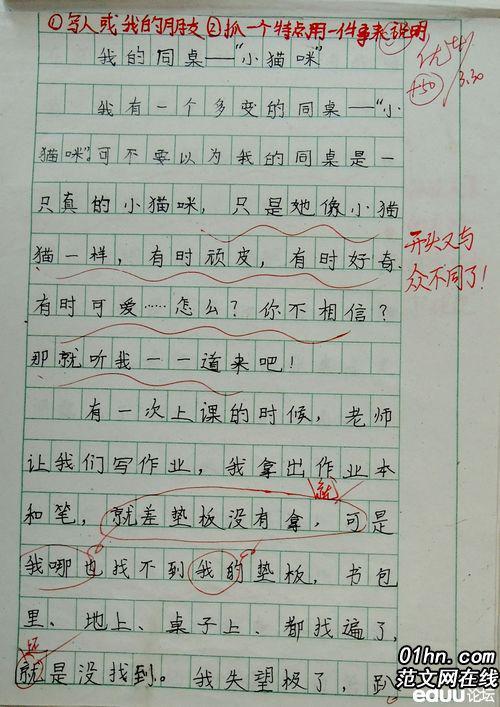 ①写人或我的朋友②抓一个特点用一件事来说明
我的同桌——“小猫咪”
优
+50
3.30
我有一个多变的同桌——“小
猫咪”。可不要以为我的同桌是一
只真的小猫咪，只是她像小猫
猫一样，有时顽皮，有时好奇，
有时可爱……怎么？你不相信？
那就听我一一道来吧！
开头又与
众不同了！
有一次上课的时候，老师
让我们写作业，我拿出作业本
就
和笔，就差垫板没有拿，可是
我哪也找不到我的垫板，书包
里、地上、桌子上、都找遍了，
还
就是没找到。我失望极了，趴
01hn.com
范文网在线
eduu论坛